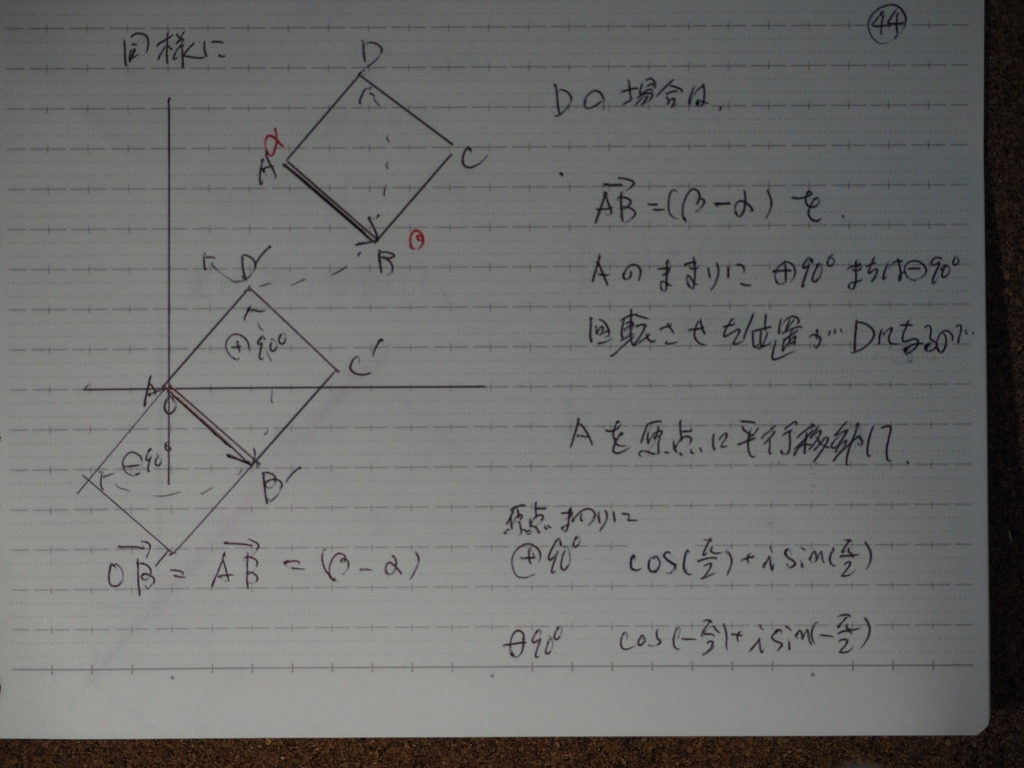 ㊹
同様に
D
α
A
C
B
β
Dの場合は、
AB→=(β-α)を
Aのまわりに ⊕90°または⊖90°
回転させた位置がDになるので
D'
⊕90°
C'
A
O
⊖90°
B'
Aを原点に平行移動して
原点まわりに
⊕90° cos(π/2)+i sin(π/2)
⊖90° cos(-π/2)+i sin(-π/2)
OB'→ = AB→ = (β-α)